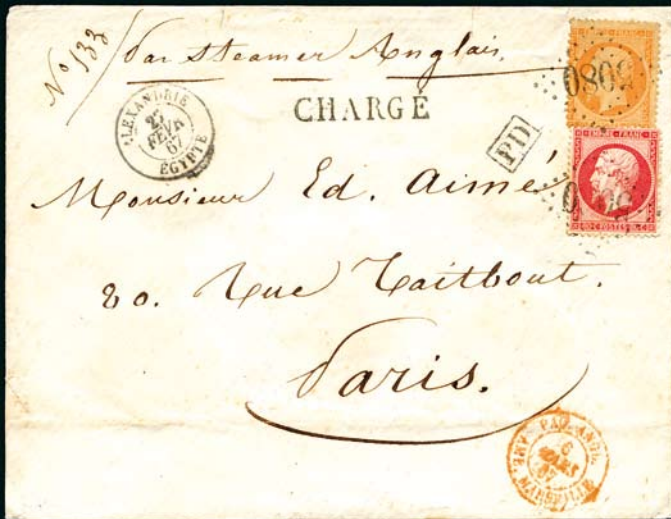 No 133
par steamer Anglais.
ALEXANDRIE
FEVR
67
EGYPTE
CHARGÉ
PD
5080
EMPIRE FRANC
80 C POSTES 80 C
Monsieur Ed. Aimé
20. Rue Taitbout.
Paris.
PAQ. ANGL.
6
MARS
67
AMB. MARSEILLE